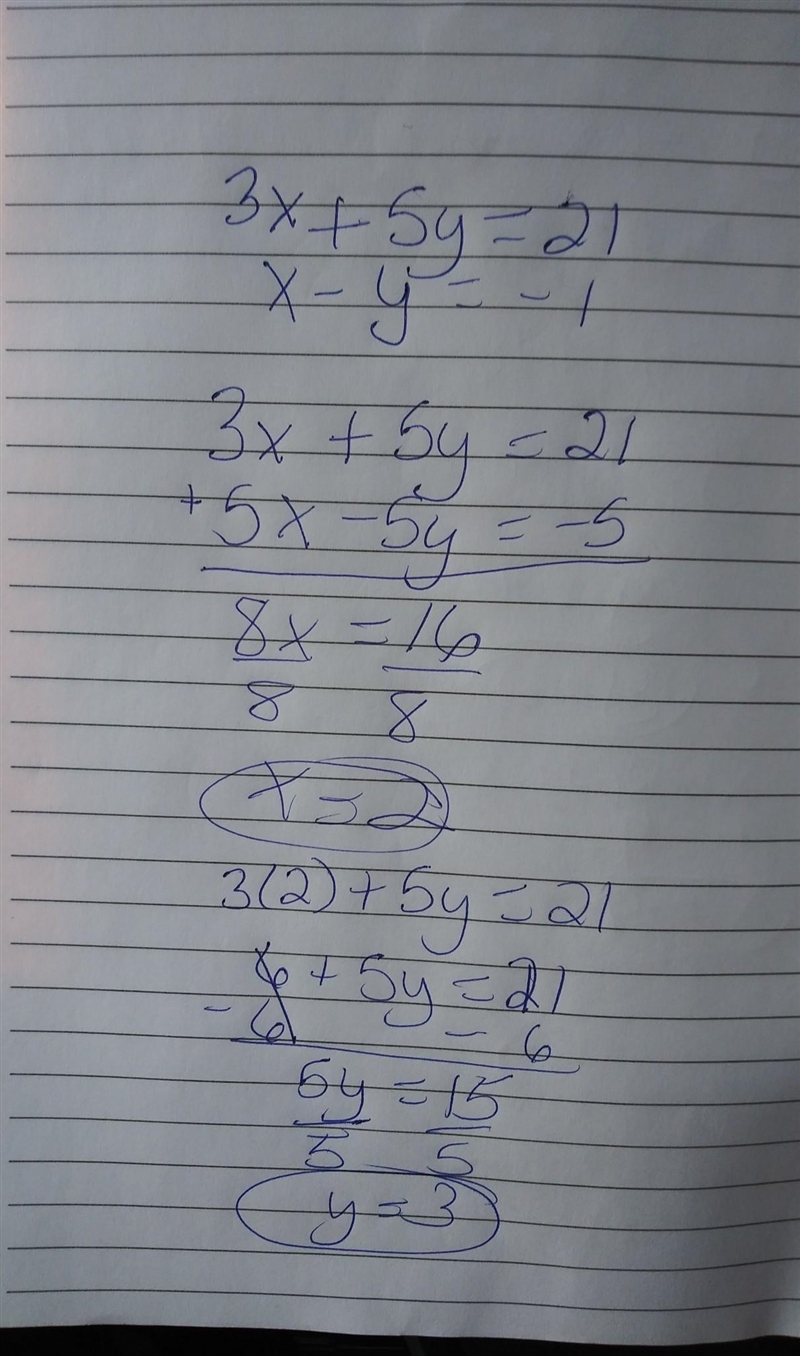 3x + 5y = 21
x - y = -1
3x + 5y = 21
+ 5x - 5y = -5
8x = 16
8 8
x = 2
3(2) + 5y = 21
6 + 5y = 21
- 6 - 6
5y = 15
5 5
y = 3